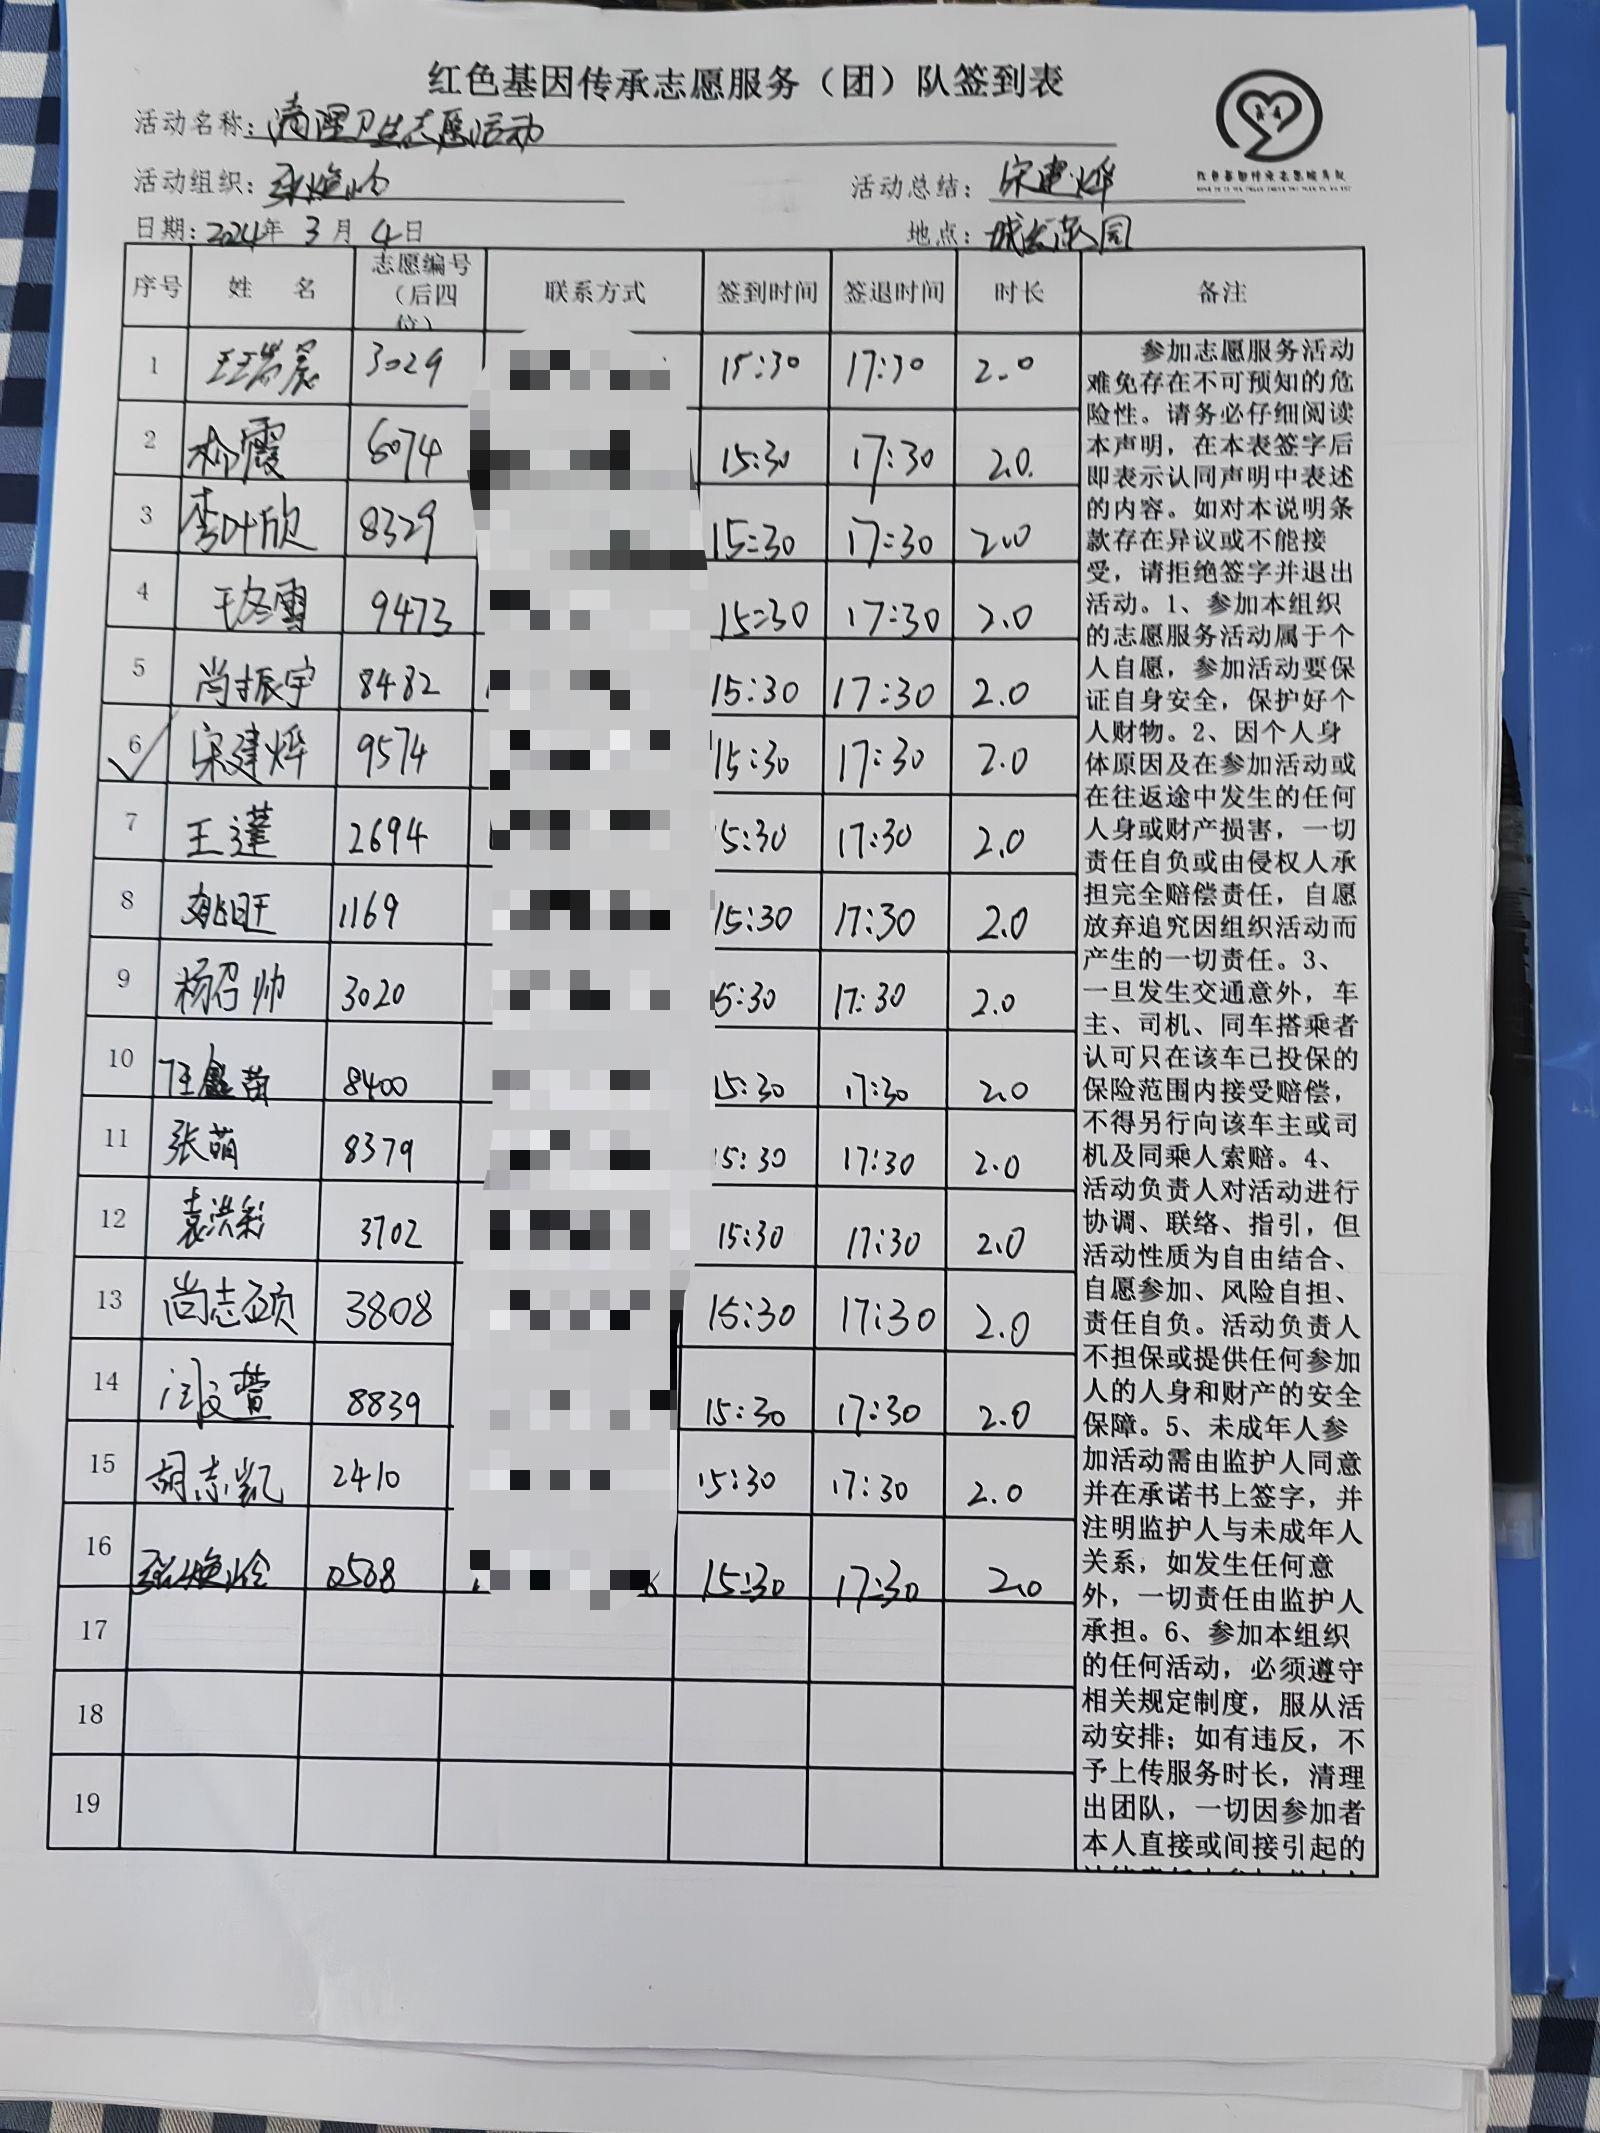 红色基因传承志愿服务（团）队签到表
活动名称：清理卫生志愿活动
活动组织：张焕玲 活动总结：宋建烨
日期：2024年 3月 4日 地点：
序号 姓 名 志愿编号（后四位） 联系方式 签到时间 签退时间 时长 备注
1 3029 15:30 17:30 2.0
2 6074 15:30 17:30 2.0
3 李叶欣 8329 15:30 17:30 2.0
4 王冬雪 9473 15:30 17:30 2.0
5 尚振宇 8482 15:30 17:30 2.0
6 宋建烨 9574 15:30 17:30 2.0
7 王莲 2694 5:30 17:30 2.0
8 姚旺 1169 15:30 17:30 2.0
9 杨召帅 3020 5:30 17:30 2.0
10 8400 15:30 17:30 2.0
11 张萌 8379 15:30 17:30 2.0
12 袁洪彩 3702 15:30 17:30 2.0
13 尚志硕 3808 15:30 17:30 2.0
14 闫文萱 8839 15:30 17:30 2.0
15 胡志凯 2410 15:30 17:30 2.0
16 张焕玲 0568 15:30 17:30 2.0
17
18
19
参加志愿服务活动
难免存在不可预知的危
险性。请务必仔细阅读
本声明，在本表签字后
即表示认同声明中表述
的内容。如对本说明条
款存在异议或不能接
受，请拒绝签字并退出
活动。1、参加本组织
的志愿服务活动属于个
人自愿，参加活动要保
证自身安全，保护好个
人财物。2、因个人身
体原因及在参加活动或
在往返途中发生的任何
人身或财产损害，一切
责任自负或由侵权人承
担完全赔偿责任，自愿
放弃追究因组织活动而
产生的一切责任。3、
一旦发生交通意外，车
主、司机、同车搭乘者
认可只在该车已投保的
保险范围内接受赔偿，
不得另行向该车主或司
机及同乘人索赔。4、
活动负责人对活动进行
协调、联络、指引，但
活动性质为自由结合、
自愿参加、风险自担、
责任自负。活动负责人
不担保或提供任何参加
人的人身和财产的安全
保障。5、未成年人参
加活动需由监护人同意
并在承诺书上签字，并
注明监护人与未成年人
关系，如发生任何意
外，一切责任由监护人
承担。6、参加本组织
的任何活动，必须遵守
相关规定制度，服从活
动安排；如有违反，不
予上传服务时长，清理
出团队，一切因参加者
本人直接或间接引起的
红色基因传承志愿服务队